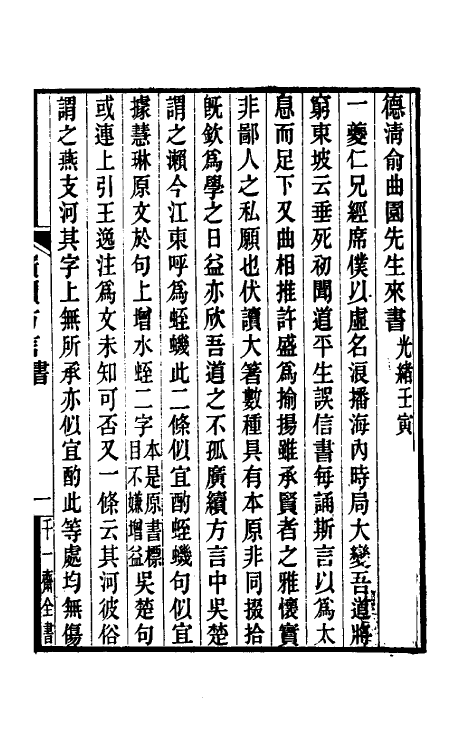 德清俞曲園先生來書光緒壬寅
一夔仁兄經席僕以虛名浪播海內時局大變吾道將
窮東坡云垂死初聞道平生誤信書每誦斯言以爲太
息而足下又曲相推許盛爲揄揚雖承賢者之雅懷實
非鄙人之私願也伏讀大箸數種具有本原非同掇拾
旣欽爲學之日益亦欣吾道之不孤廣續方言中吳楚
謂之瀨今江東呼爲蛭蟣此二條似宜酌蛭蟣句似宜
據慧琳原文於句上增水蛭二字本是原書標目不嫌增益吳楚句
或連上引王逸注爲文未知可否又一條云其河彼俗
謂之燕支河其字上無所承亦似宜酌此等處均無傷
廣續方言書
一
千一齋全書